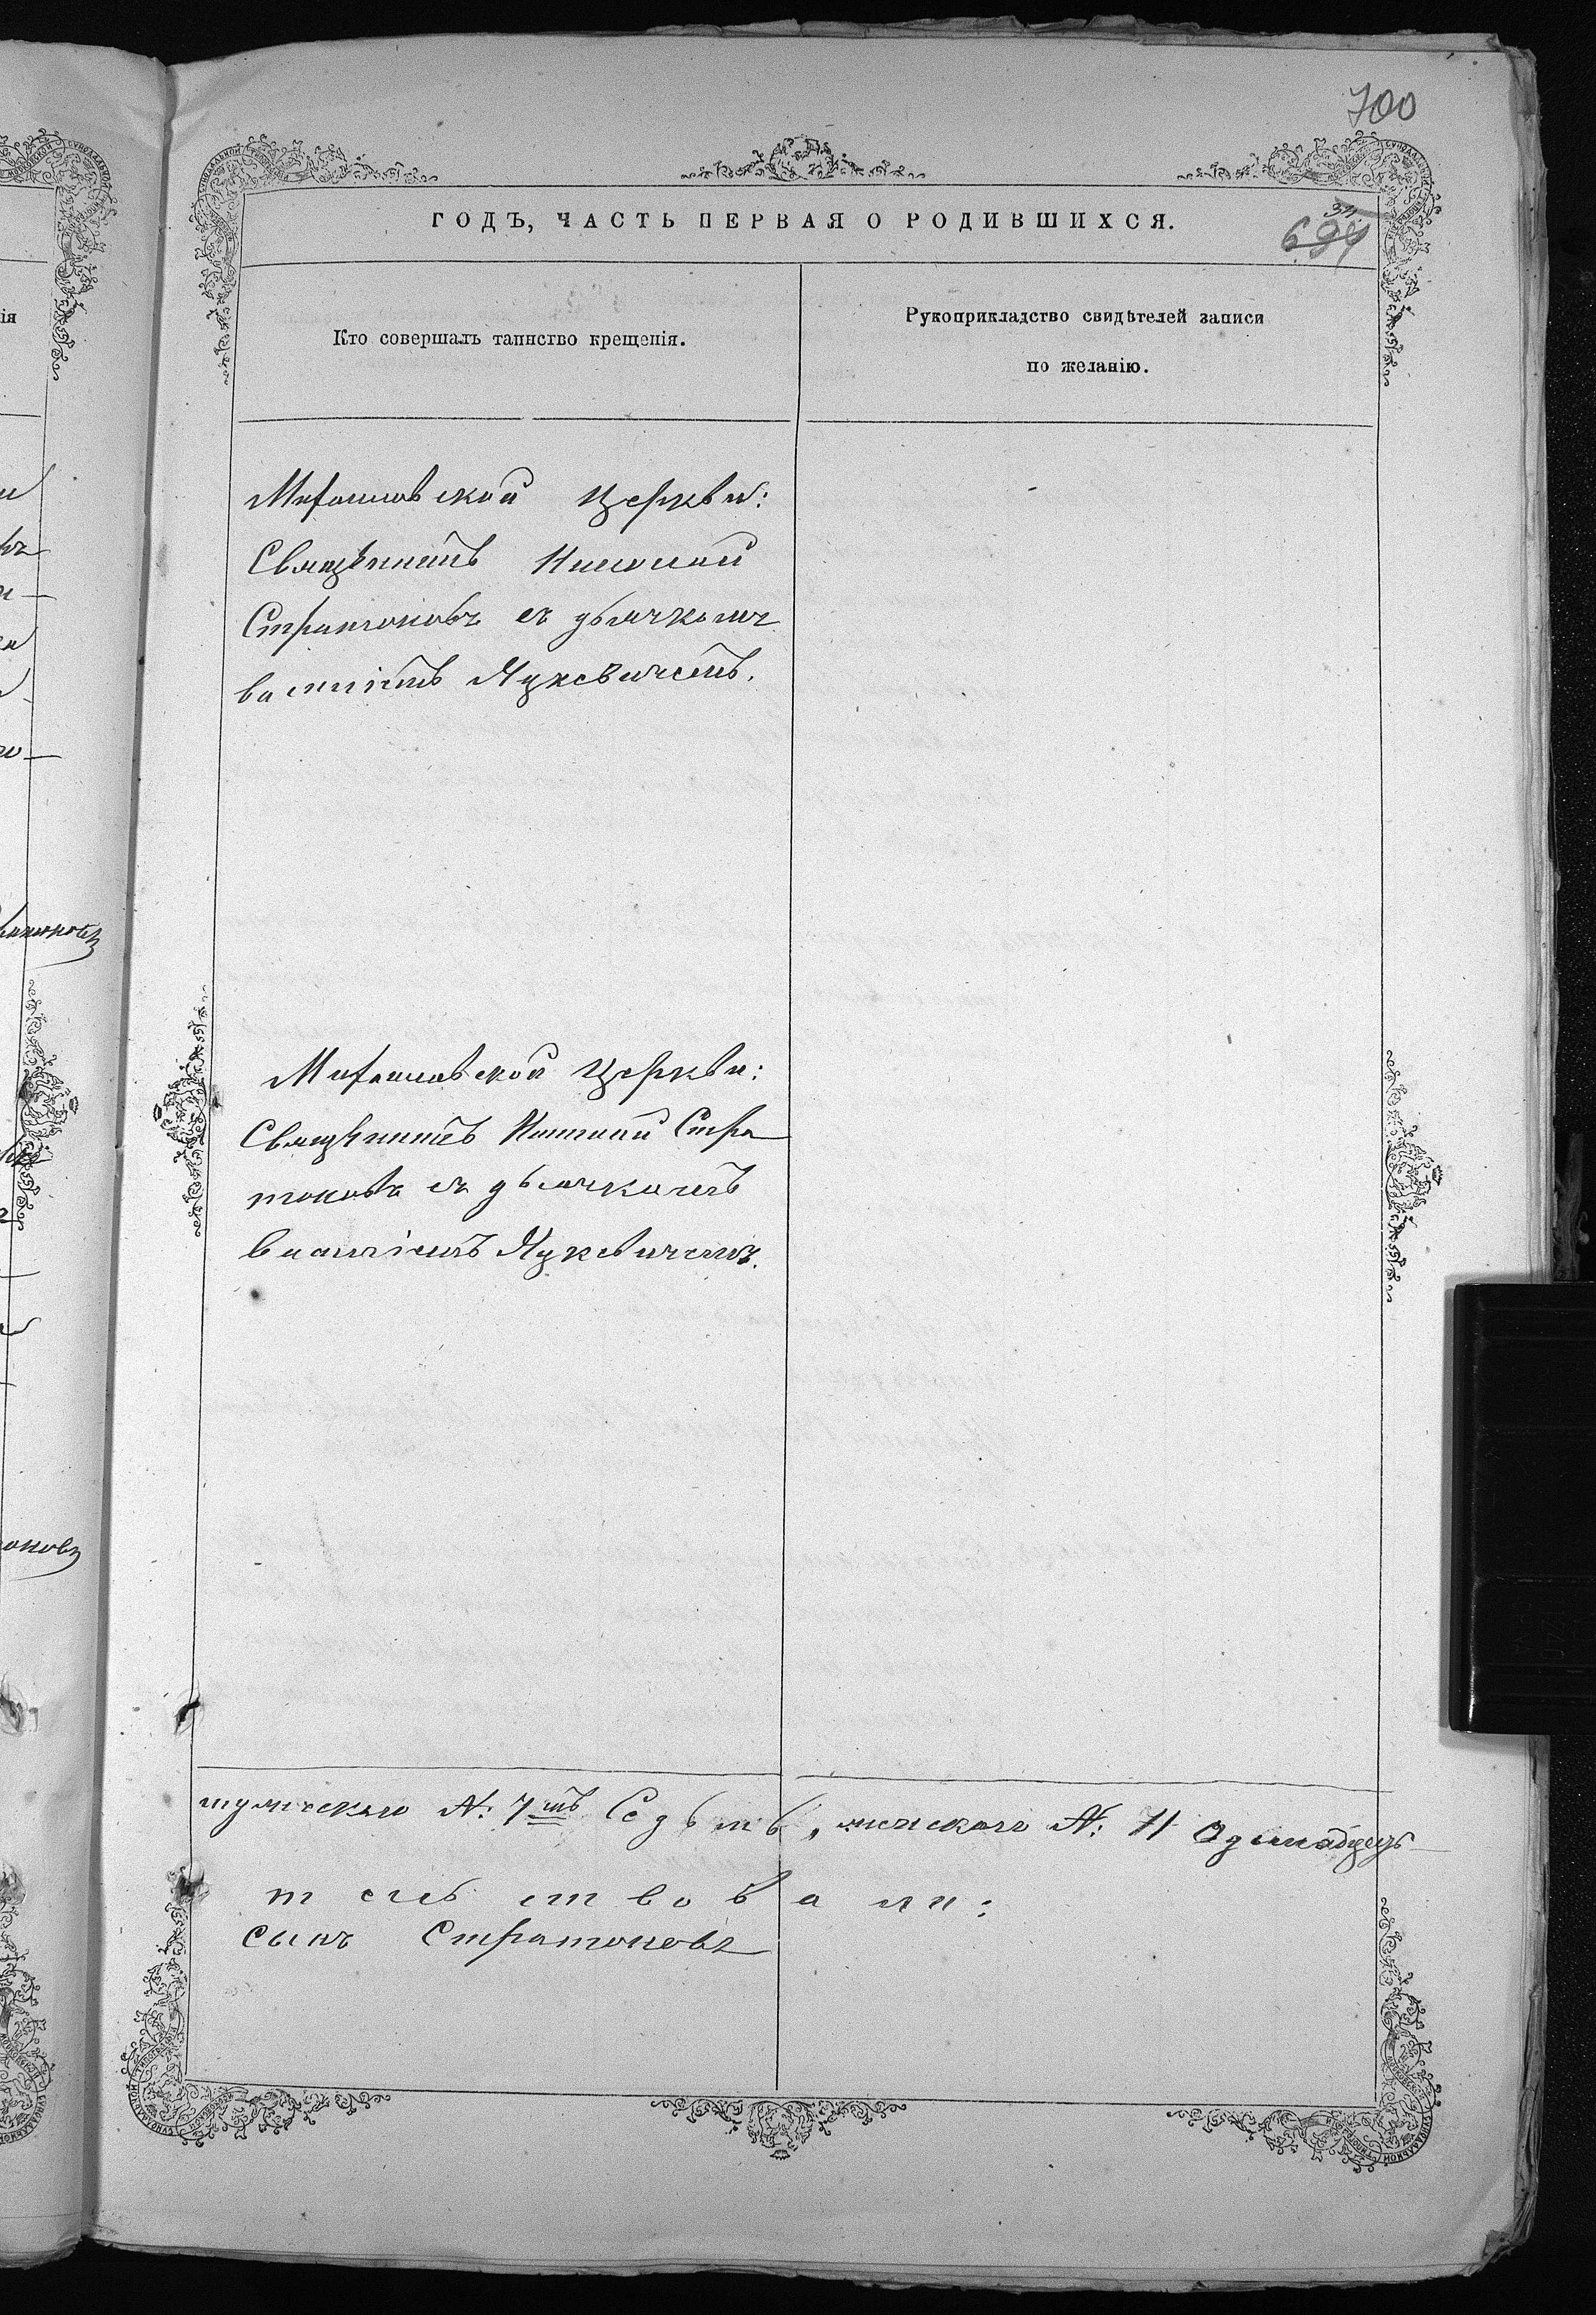 700
ГОДЪ, ЧАСТЬ ПЕРВАЯ О РОДИВШИХСЯ.
694
Кто совершалъ таинство крещенія.
Рукоприкладство свидѣтелей записи
по желанію.
церкви:
Священникъ Николай
Стратоновъ съ дьячкомъ
Василіемъ Яцкевичемъ.
церкви:
Священникъ Николай Стра
тоновъ съ дьячкомъ
Василіемъ Яцкевичемъ.
мужескаго №: 7мъ Седьмь, женскаго №: 11 Одинадцать
тельствовали:
сынъ Стратоновъ